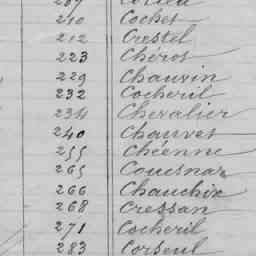 210 Cochet
212 Crestel
223 Chérot
229 Chauvin
232 Cocheril
234 Chevalier
240 Chauvet
255 Chéenne
265 Couesnar
266 Chauchix
268 Cressan
271 Cocheril
283 Corseul